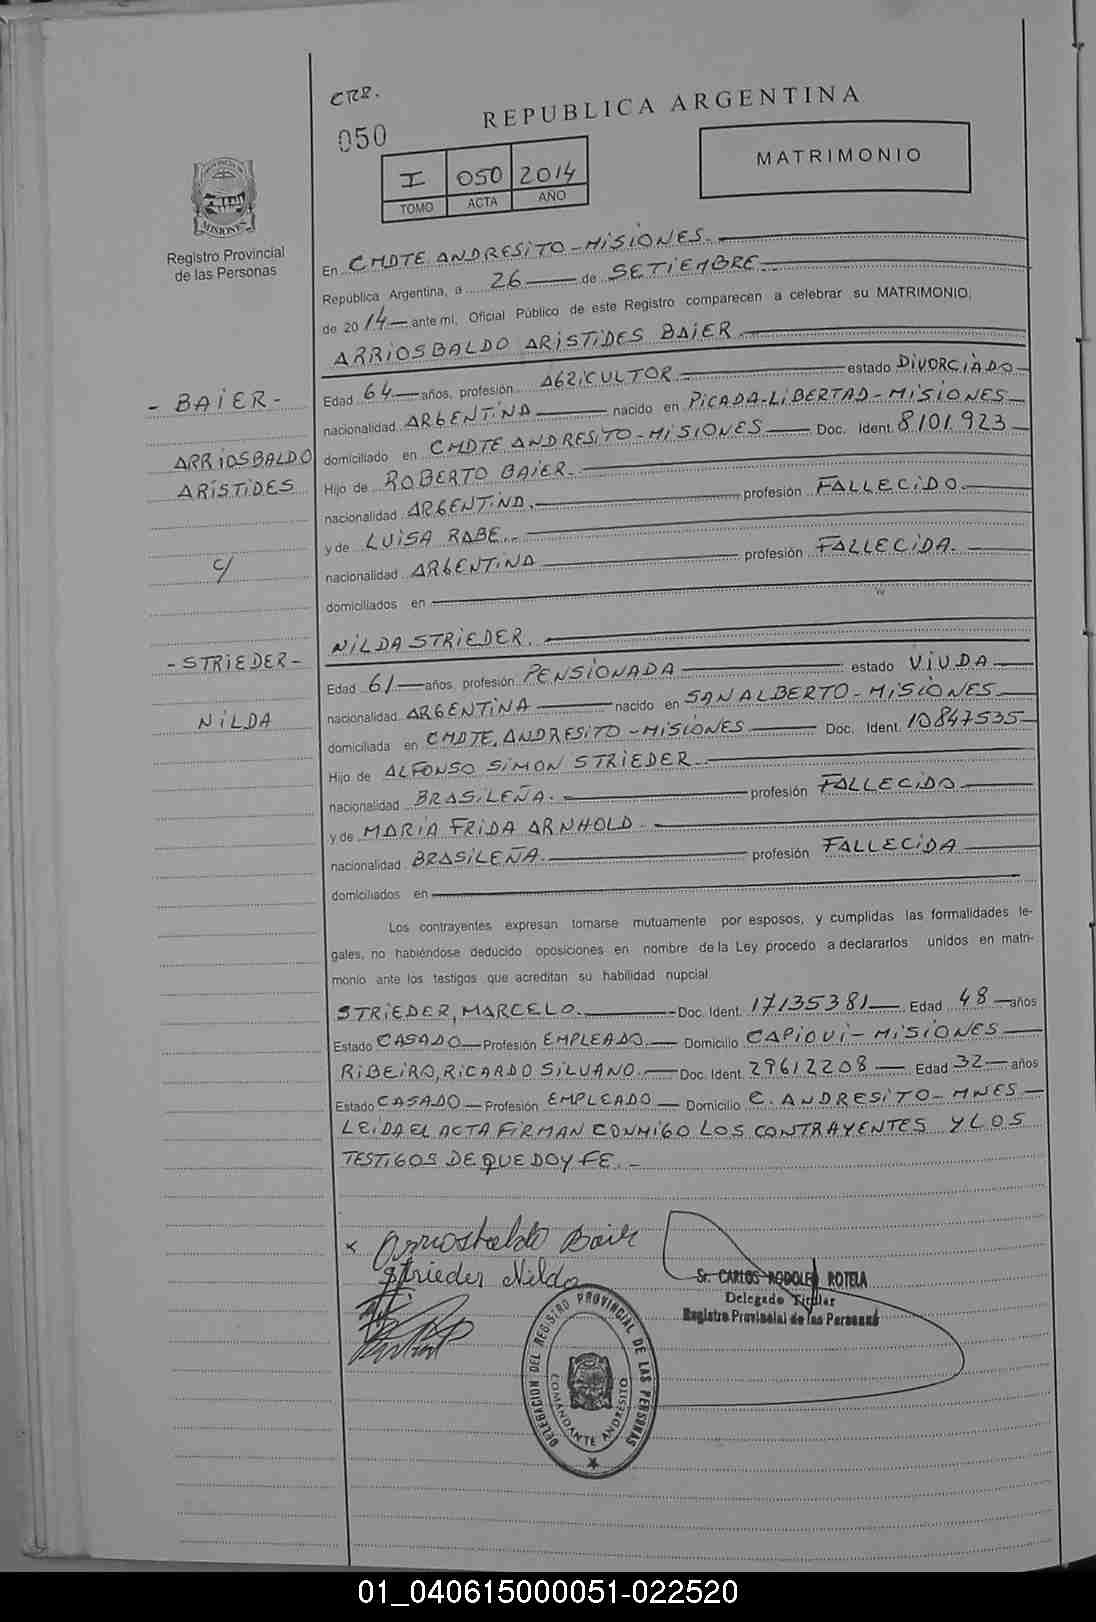 CRR.
REPUBLICA ARGENTINA
050
I 050 2014
TOMO ACTA AÑO
MATRIMONIO
PROVINCIA DE
MISIONES
Registro Provincial
de las Personas
En CMDTE ANDRESITO-MISIONES.
República Argentina, a 26 de SETIEMBRE
de 2014 ante mi, Oficial Público de este Registro comparecen a celebrar su MATRIMONIO,
ARRIOSBALDO ARISTIDES BAIER
- BAIER -
ARRIOSBALDO
ARISTIDES
c/
- STRIEDER -
NILDA
Edad 64 años, profesión AGRICULTOR estado DIVORCIADO
nacionalidad ARGENTINA nacido en PICADA-LIBERTAD-MISIONES
domiciliado en CMDTE ANDRESITO-MISIONES Doc. Ident. 8101923
Hijo de ROBERTO BAIER.
nacionalidad ARGENTINA. profesión FALLECIDO.
y de LUISA RABE..
nacionalidad ARGENTINA profesión FALLECIDA.
domiciliados en
NILDA STRIEDER.
Edad 61 años, profesión PENSIONADA estado VIUDA
nacionalidad ARGENTINA nacido en SAN ALBERTO-MISIONES
domiciliada en CMDTE. ANDRESITO-MISIONES Doc. Ident. 10847535
Hija de ALFONSO SIMON STRIEDER
nacionalidad BRASILEÑA. profesión FALLECIDO
y de MARIA FRIDA ARNHOLD
nacionalidad BRASILEÑA. profesión FALLECIDA
domiciliados en
Los contrayentes expresan tomarse mutuamente por esposos, y cumplidas las formalidades le-
gales, no habiéndose deducido oposiciones en nombre de la Ley procedo a declararlos unidos en matri-
monio ante los testigos que acreditan su habilidad nupcial.
STRIEDER, MARCELO. Doc. Ident. 17135381 Edad 48 años
Estado CASADO Profesión EMPLEADO. Domicilio CAPIOVI-MISIONES
RIBEIRO, RICARDO SILVANO. Doc. Ident. 29612208 Edad 32 años
Estado CASADO Profesión EMPLEADO Domicilio C. ANDRESITO-MNES
LEIDA EL ACTA FIRMAN CONMIGO LOS CONTRAYENTES Y LOS
TESTIGOS DE QUE DOY FE.-
x Arriosbaldo Baier
Strieder Nilda
Sr. CARLOS RODOLFO ROTELA
Delegado Titular
Registro Provincial de las Personas
DELEGACION DEL REGISTRO PROVINCIAL DE LAS PERSONAS
COMANDANTE ANDRESITO
01_040615000051-022520